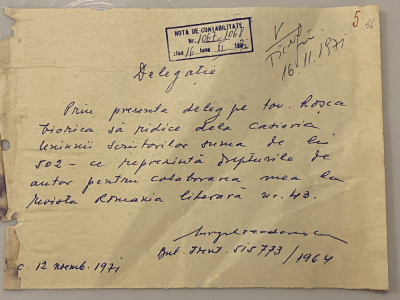 5
NOTA DE CONTABILITATE
Nr. 1067-1068
ziua 16 luna 11 197
V
16.11.1971
Delegație
Prin prezenta deleg pe tov. Roșca
Viorica să ridice dela Casieria
Uniunii Scriitorilor suma de lei
502 - ce reprezintă drepturile de
autor pentru colaborarea mea la
revista România literară nr. 43.
Bul. Ident. 515773/1964
c. 12 noemb. 1971